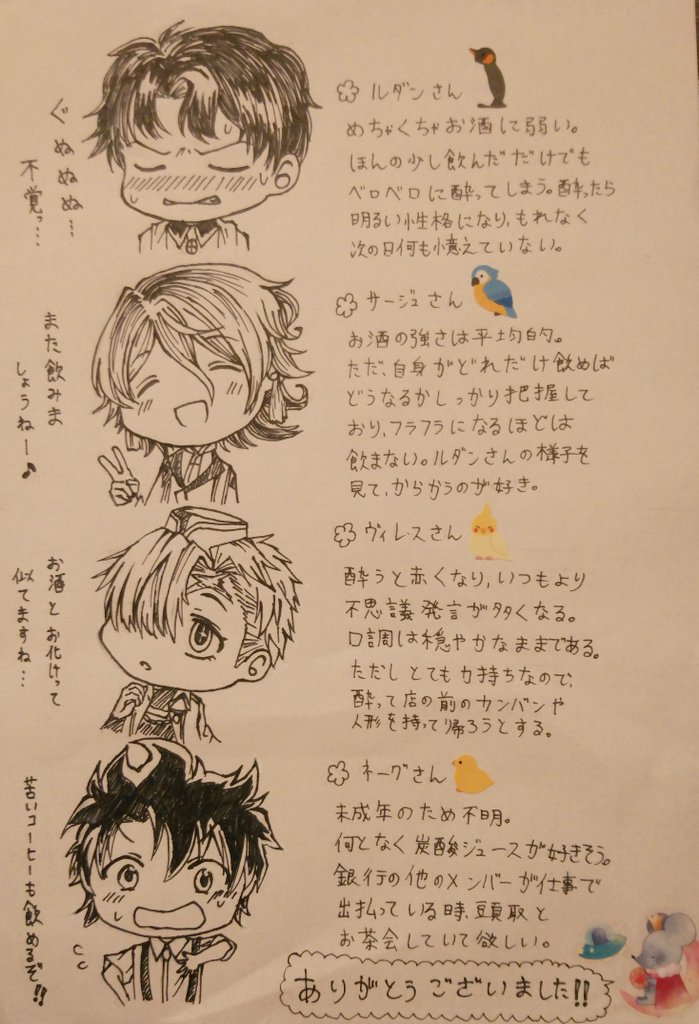 ルダンさん
めちゃくちゃお酒に弱い。
ほんの少し飲んだだけでも
ベロベロに酔ってしまう。酔ったら
明るい性格になり、もれなく
次の日何も憶えていない。
ぐぬぬぬ…
不覚っ…
サージュさん
お酒の強さは平均的。
ただ、自身がどれだけ飲めば
どうなるかしっかり把握して
おり、フラフラになるほどは
飲まない。ルダンさんの様子を
見て、からかうのが好き。
また飲みま
しょうねー♪
ヴィレスさん
酔うと赤くなり、いつもより
不思議発言が多くなる。
口調は穏やかなままである。
ただしとても力持ちなので、
酔って店の前のカンバンや
人形を持って帰ろうとする。
お酒とお化けって
似てますね…
ネーグさん
未成年のため不明。
何となく炭酸ジュースが好きそう。
銀行の他のメンバーが仕事で
出払っている時、頭取と
お茶会していて欲しい。
苦いコーヒーも飲めるぞ!!
ありがとうございました!!